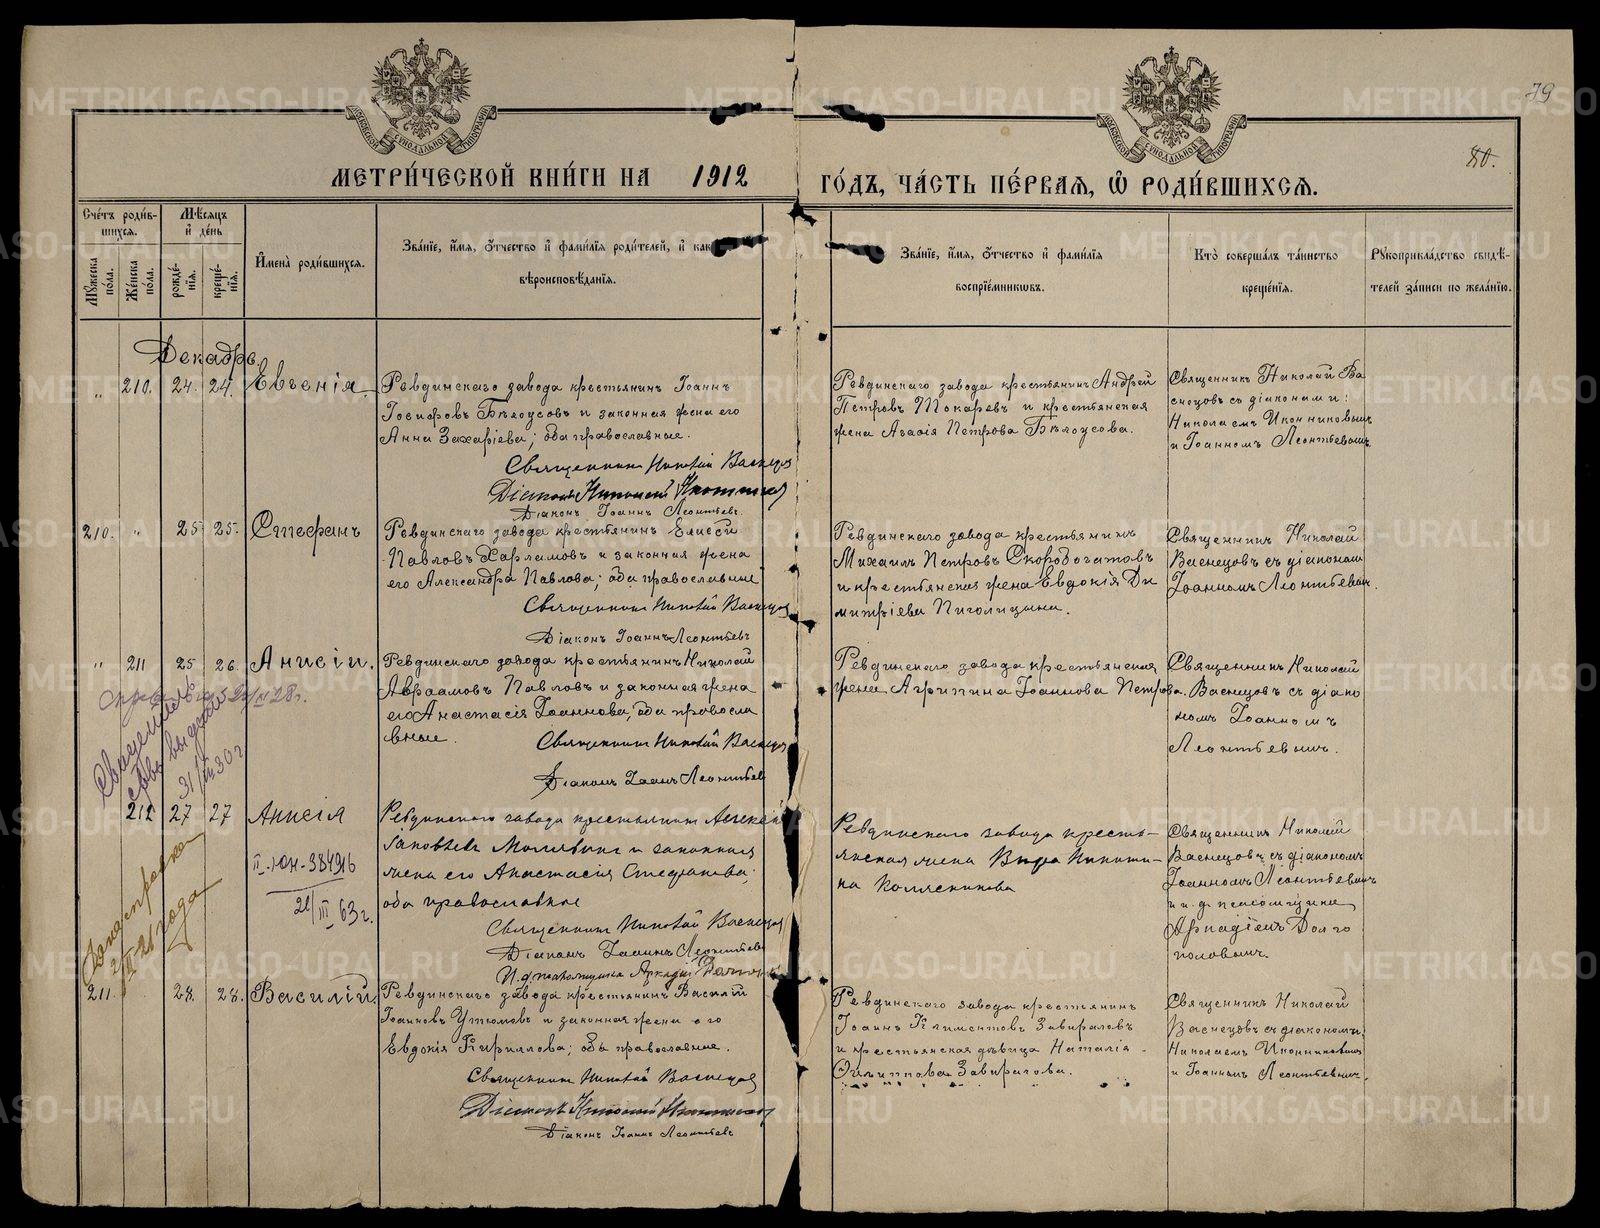 МЕТРИ́ЧЕСКОЙ КНИ́ГИ НА 1912 ГО́ДЪ, ЧА́СТЬ ПЕ́РВАЯ, Ѿ РОДИ́ВШИХСЯ.
79
80.
Сче́тъ роди́в-
шихся.
Мꙋжеска по́ла.
Же́нска по́ла.
Мѣ́сяцъ и҆ де́нь
рожде́нїя.
креще́нїя.
И҆мена̀ роди́вшихся.
Зва́нїе, и҆́мя, ѻ҆́тчество и҆ фами́лїя роди́телей, и҆ как
вѣроисповѣ́данїя.
Зва́нїе, и҆́мя, ѻ҆́тчество и҆ фами́лїя
воспрїе́мниковъ.
Кто̀ соверша́лъ та́инство
креще́нїя.
Рꙋкоприкла́дство свидѣ́-
телей за́писи по жела́нїю.
Декабрь.
" 210. 24. 24. Евгенія.
Ревдинскаго завода крестьянинъ Іоаннъ
Іосифовъ Бѣлоусовъ и законная жена его
Анна Захаріева; оба православные.
Священникъ Николай Васнецов
Діаконъ Николай
Діаконъ Іоаннъ Леонтьевъ.
Ревдинскаго завода крестьянинъ Андрей
Петровъ Токаревъ и крестьянская
жена Агафія Петрова Бѣлоусова.
Священникъ Николай Ва
снецовъ съ діаконами:
Николаемъ Иконниковымъ
и Іоанномъ Леонтьевымъ.
210. " 25 25. Стефанъ
Ревдинскаго завода крестьянинъ Елисей
Павловъ Харламовъ и законная жена
его Александра Павлова; оба православные
Священникъ Николай Васнецов
Діаконъ Іоаннъ Леонтьевъ
Ревдинскаго завода крестьянинъ
Михаилъ Петровъ Скоробогатовъ
и крестьянская жена Евдокія Ди
митріева Пиголицына.
Священникъ Николай
Васнецовъ съ діакономъ
Іоанномъ Леонтьевымъ.
" 211 25 26. Анисія.
Ревдинскаго завода крестьянинъ Николай
Авраамовъ Павловъ и законная жена
его Анастасія Іоаннова; оба правосла
вные.
Священникъ Николай Васнецов
Діаконъ Іоаннъ Леонтьев
Ревдинскаго завода крестьянская
жена Агрипина Іоаннова Петрова.
Священникъ Николай
Васнецовъ съ діако
номъ Іоанномъ
Леонтьевымъ.
выдано
31/III 30 г
212 27 27 Анисія
II-ЮН-384916
21/III 63 г.
Ревдинскаго завода крестьянинъ Алексей
Іаковлевъ и законная
жена его Анастасія Стефанова;
оба православные
Священникъ Николай Васнецов
Діаконъ Іоаннъ Леонтьев
И.д. псаломщика Аркадій
Ревдинскаго завода кресть-
янская жена Вѣра Никити-
на Колясникова
Священникъ Николай
Васнецовъ съ діакономъ
Іоанномъ Леонтьевымъ
и и.д. псаломщика
Аркадіемъ Долго
половымъ.
211. 28. 28. Василій.
Ревдинскаго завода крестьянинъ Василій
Іоанновъ Утюмовъ и законная жена его
Евдокія Кириллова; оба православные.
Священникъ Николай Васнецов
Діаконъ Николай
Діаконъ Іоаннъ Леонтьевъ
Ревдинскаго завода крестьянинъ
Іоаннъ Климентовъ Завираловъ
и крестьянская дѣвица Наталія
Филиппова Завиралова.
Священникъ Николай
Васнецовъ съ діаконами:
Николаемъ Иконниковымъ
и Іоанномъ Леонтьевымъ.
METRIKI.GASO-URAL.RU